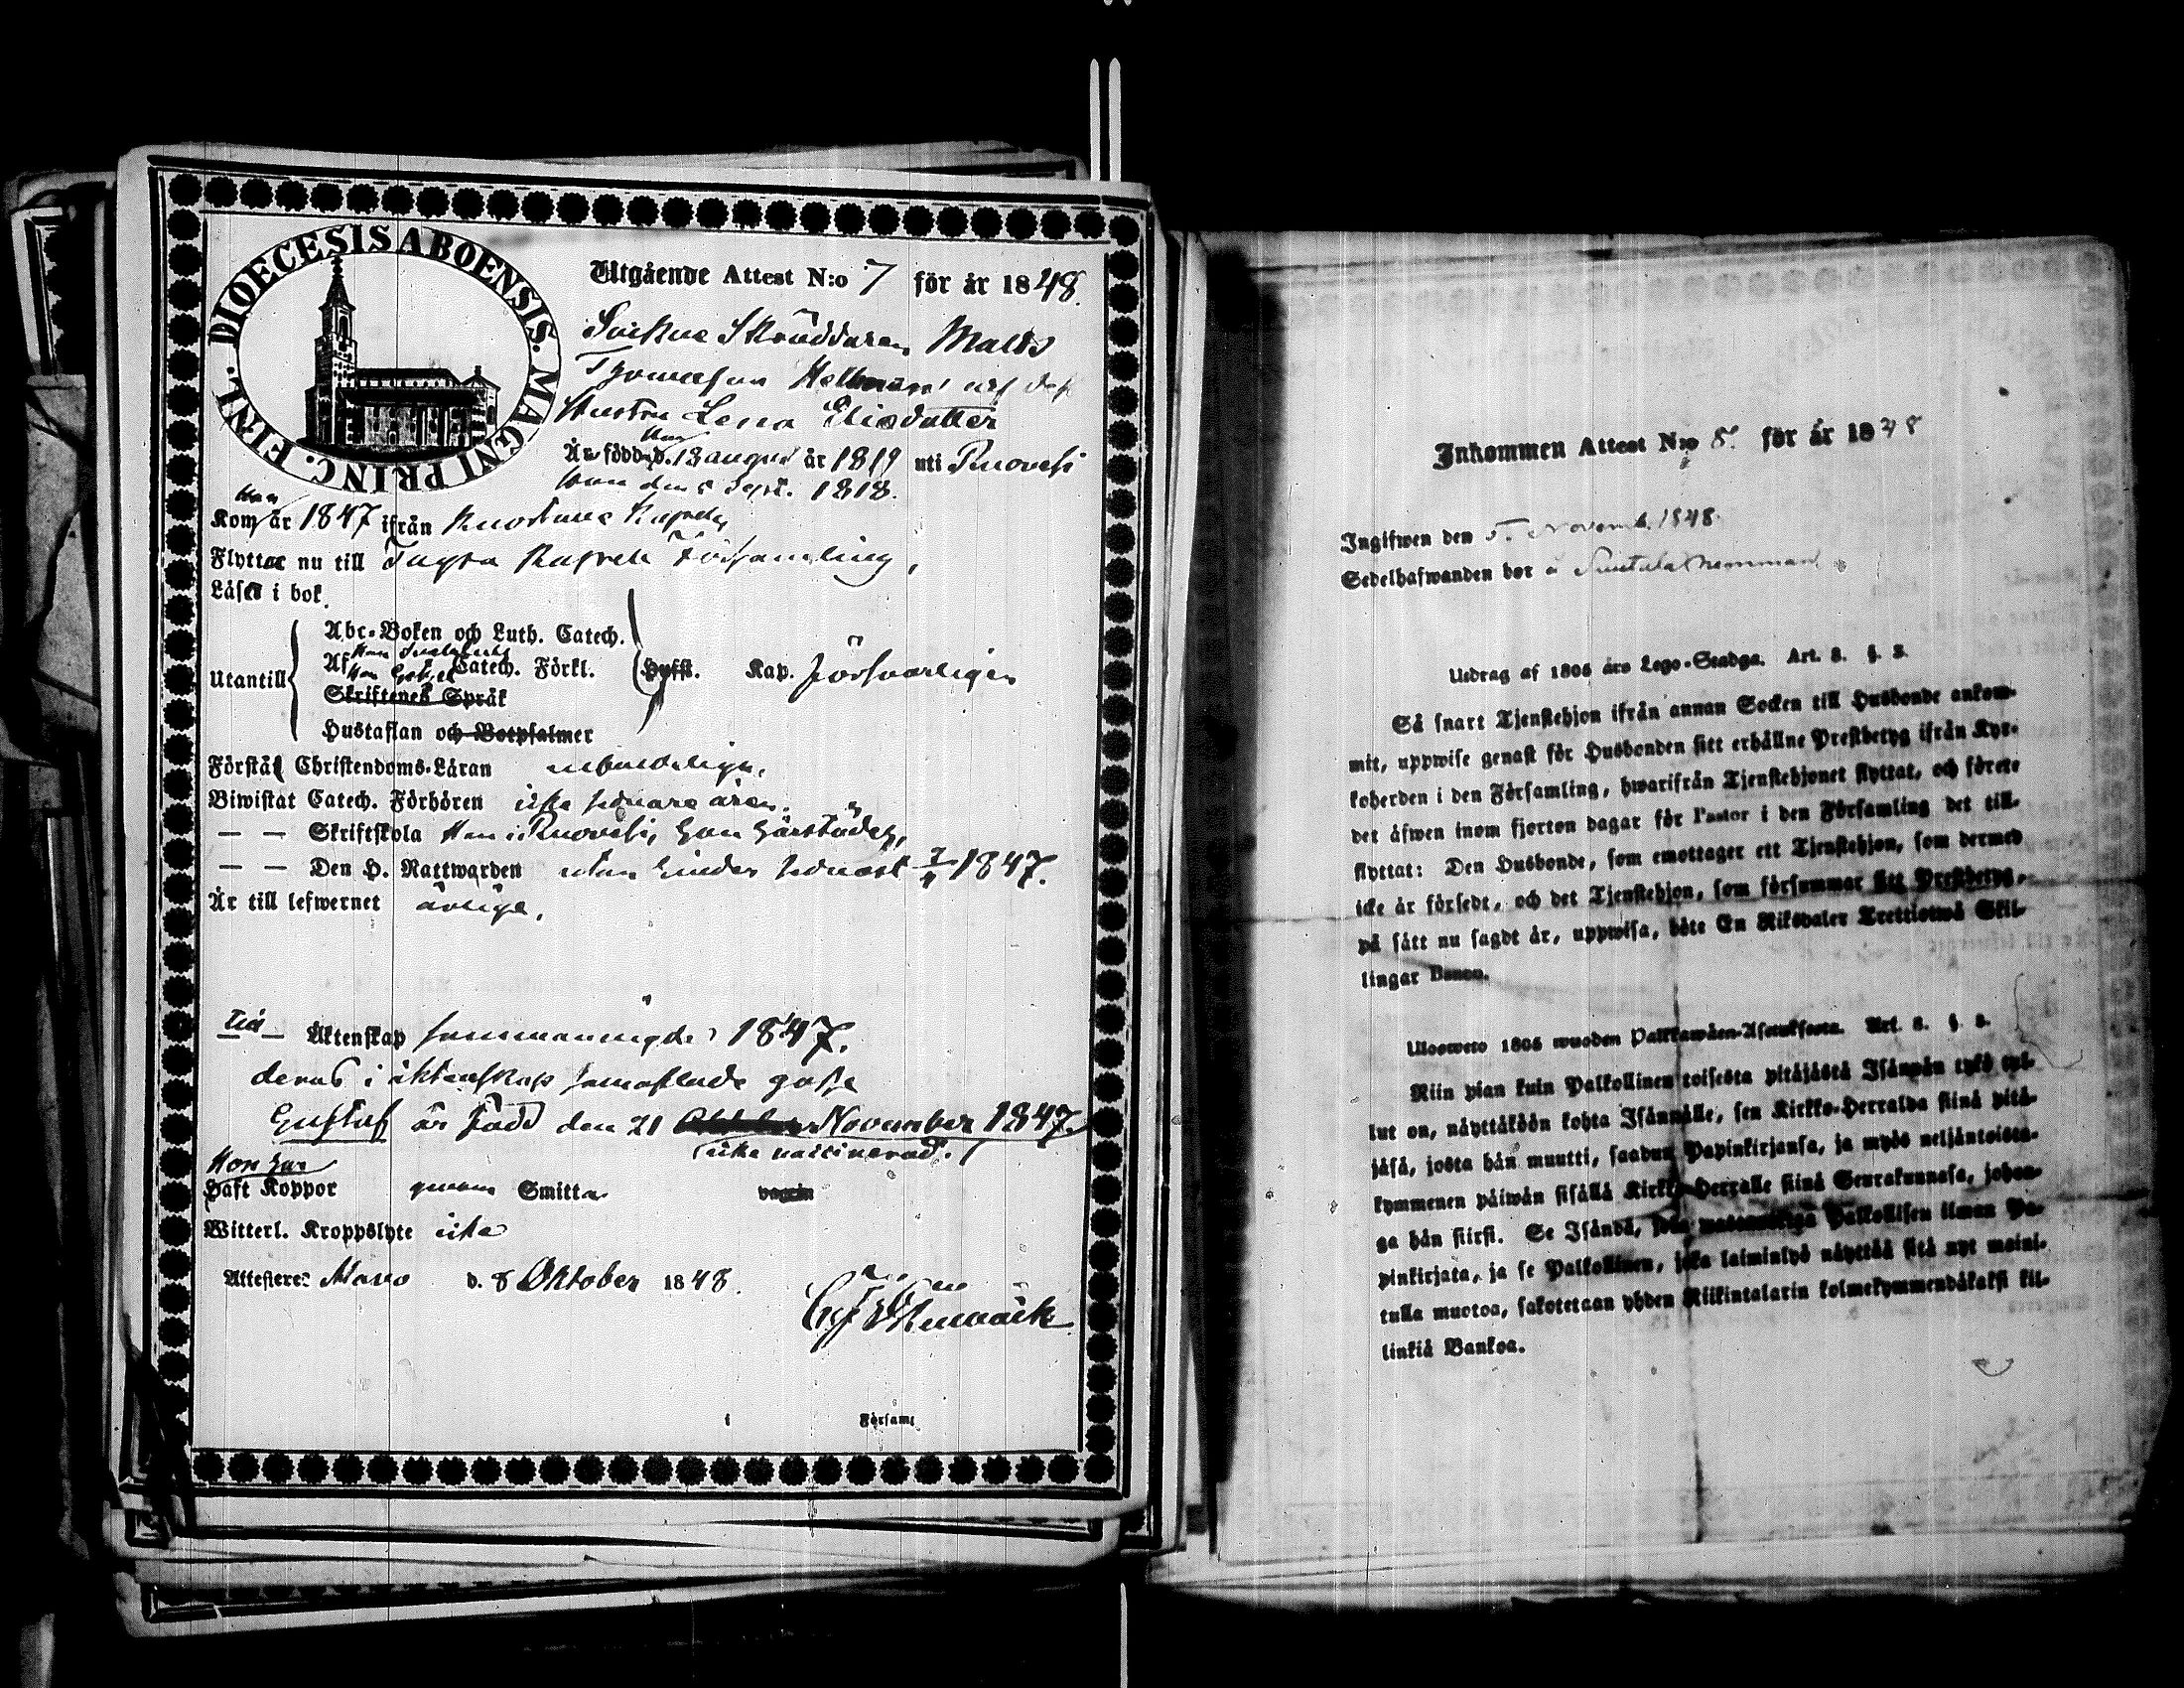 DIOECESIS ABOENSIS. MAGNI PRINC. FINL.
Utgående Attest N:o 7 för år 1848.
Skräddaren Matts
Hellman
Hustru Lena Eliædotter
Han
Är född d. 13 augusti år 1819 uti Ruovesi
hon den 5 Sept. 1818.
Han
Kom år 1847 ifrån Kapell
Flyttar nu till Kapell Församling,
Läser i bok
Abc-Boken och Luth. Catech.
Han
Af Catech. Förkl.
Hon
Utantill Hufst. Kap. försvarligen
Skriftenes Språk
Hustaflan och Botpsalmer
Förstår Christendoms-Läran
Biwistat Catech. Förhören senare åren.
— — Skriftskola Han i Ruovesi, hon härstädes,
— — Den H. Nattwarden utan hinder senast 1847.
Är till lefwernet ärliga,
— — Äktenskap 1847.
deras i äktenskap sammaflade gosse
Gustaf är född den 21 November 1847.
icke vaccinerad.
Hon har
Haft Koppor genom Smitta vaccin
Witterl. Kroppslyte icke
Attesterer d. 8 Oktober 1848.
i Församl
Inkommen Attest N:o 8. för år 1848
Ingifwen den 5. Novemb. 1848.
Sedelhafwanden bor å
Utdrag af 1805 års Lego-Stadga. Art. 8. §. 8.
Så snart Tjenstehjon ifrån annan Socken till Husbonde ankom-
mit, uppwise genast för Husbonden sitt erhållne Prestbetyg ifrån Kyr-
koherden i den Församling, hwarifrån Tjenstehjonet flyttat, och förete
det äfwen inom fjorton dagar för Pastor i den Församling det till-
flyttat: Den Husbonde, som emottager ett Tjenstehjon, som dermed
icke är försedt, och det Tjenstehjon, som försummar sitt Prestbetyg,
på sått nu sagdt är, uppwisa, böte En Riksdaler Trettiotwå Skil-
lingar Banco.
Ulosweto 1805 wuoden Palkkawäen-Asetuksesta. Art. 8. §. 8.
Niin pian kuin Palkollinen toisesta pitäjästä Isännän tykö tul-
lut on, näyttäköön kohta Isännälle, sen Kirkko-Herralda siinä pitä-
jäsä, josta hän muutti, saadun Papinkirjansa, ja myös neljäntoista-
kymmenen päiwän sisällä Kirkko-Herralle siinä Seurakunnasa, johon-
ga hän siirsi. Se Isändä, joka wastanottaa Palkollisen ilman Pa-
pinkirjata, ja se Palkollinen, joka laiminlyö näyttää sitä nyt maini-
tulla muotoa, sakotetaan yhden Riikintalarin kolmekymmendäkaksi kil-
linkiä Bankoa.